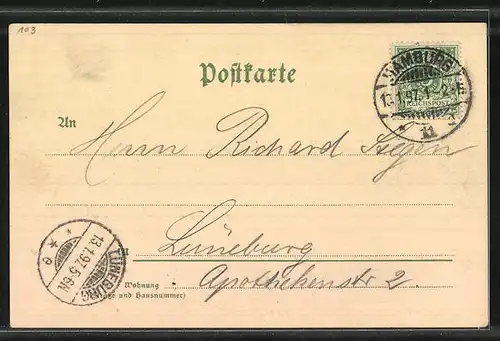 103
Postkarte
HAMBURG
13.1.97.1-2N.
REICHSPOST
* 11 d
An
Herrn Richard Segen
Lüneburg
Wohnung
(Straße und Hausnummer)
Apothekenstr 2.
LÜNEBURG
13.1.97.5-6N.